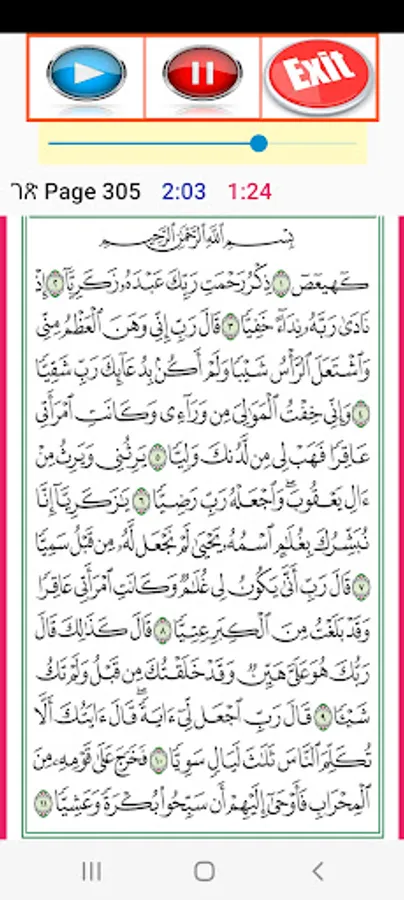 Exit
ገጽ Page 305 2:03 1:24
بِسْمِ اللَّهِ الرَّحْمَٰنِ الرَّحِيمِ
كٓهيعٓصٓ ١ ذِكْرُ رَحْمَتِ رَبِّكَ عَبْدَهُۥ زَكَرِيَّآ ٢ إِذْ
نَادَىٰ رَبَّهُۥ نِدَآءً خَفِيًّا ٣ قَالَ رَبِّ إِنِّى وَهَنَ الْعَظْمُ مِنِّى
وَاشْتَعَلَ الرَّأْسُ شَيْبًا وَلَمْ أَكُنۢ بِدُعَآئِكَ رَبِّ شَقِيًّا
٤ وَإِنِّى خِفْتُ الْمَوَٰلِىَ مِن وَرَآءِى وَكَانَتِ امْرَأَتِى
عَاقِرًا فَهَبْ لِى مِن لَّدُنكَ وَلِيًّا ٥ يَرِثُنِى وَيَرِثُ مِنْ
ءَالِ يَعْقُوبَ ۖ وَاجْعَلْهُ رَبِّ رَضِيًّا ٦ يَٰزَكَرِيَّآ إِنَّا
نُبَشِّرُكَ بِغُلَٰمٍ اسْمُهُۥ يَحْيَىٰ لَمْ نَجْعَل لَّهُۥ مِن قَبْلُ سَمِيًّا
٧ قَالَ رَبِّ أَنَّىٰ يَكُونُ لِى غُلَٰمٌ وَكَانَتِ امْرَأَتِى عَاقِرًا
وَقَدْ بَلَغْتُ مِنَ الْكِبَرِ عِتِيًّا ٨ قَالَ كَذَٰلِكَ قَالَ
رَبُّكَ هُوَ عَلَىَّ هَيِّنٌ وَقَدْ خَلَقْتُكَ مِن قَبْلُ وَلَمْ تَكُ
شَيْـًٔا ٩ قَالَ رَبِّ اجْعَل لِّىٓ ءَايَةً ۚ قَالَ ءَايَتُكَ أَلَّا
تُكَلِّمَ النَّاسَ ثَلَٰثَ لَيَالٍ سَوِيًّا ١٠ فَخَرَجَ عَلَىٰ قَوْمِهِۦ مِنَ
الْمِحْرَابِ فَأَوْحَىٰٓ إِلَيْهِمْ أَن سَبِّحُوا۟ بُكْرَةً وَعَشِيًّا ١١